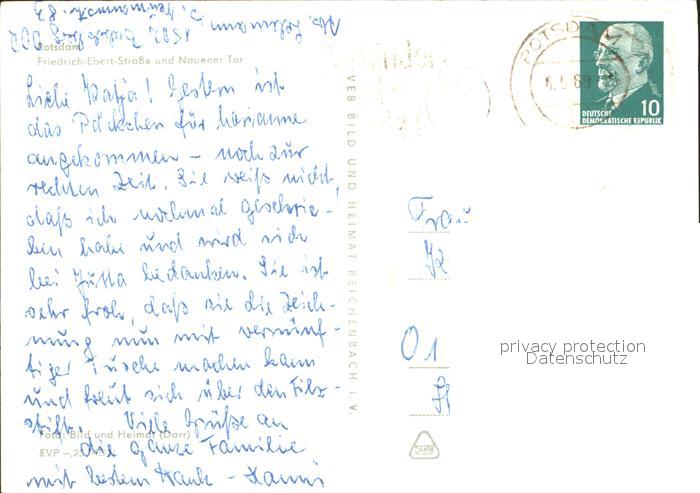 Potsdam
Friedrich-Ebert-Straße und Nauener Tor
Liebe Katja! Gestern ist
das Päckchen für Marianne
angekommen – noch zur
rechten Zeit. Sie weiß nicht,
daß ich nochmal geschrie-
ben habe und wird sich
bei Jutta bedanken. Sie ist
sehr froh, daß sie die Zeich-
nung nun mit vernünf-
tiger Tusche machen kann
und freut sich über den Filz-
stift. Viele Grüße an
die ganze Familie
mit bestem Dank – Hanni
Foto: Bild und Heimat (Darr)
EVP –,25
VEB BILD UND HEIMAT REICHENBACH I. V.
POTSDAM
DEUTSCHE
DEMOKRATISCHE REPUBLIK
10
Frau
privacy protection
Datenschutz